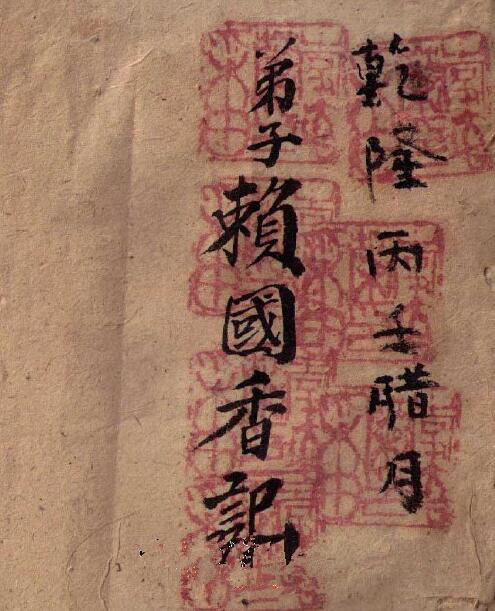 乾隆丙壬腊月
弟子賴國香記